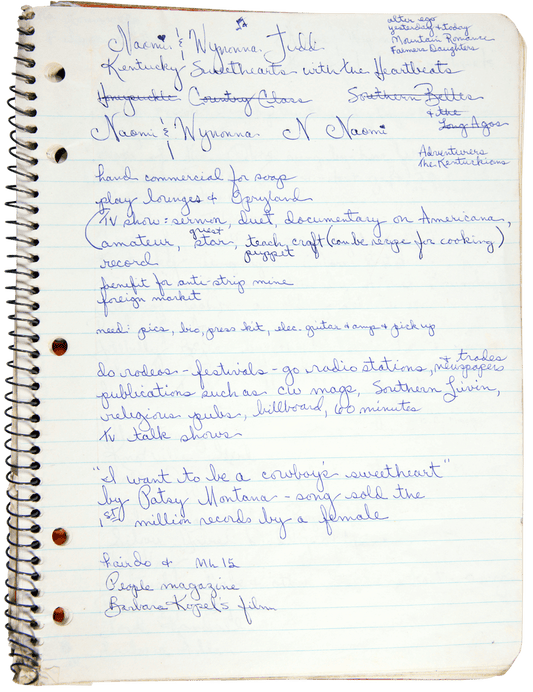 Naomi & Wynonna Judd
alter ego
yesterday & today
Mountain Romance
Farmers Daughters
Kentucky Sweethearts with the Heartbeats
Honeysuckle Country Class Southern Belles
& the
Long Agos
Naomi & Wynonna N Naomi
Adventurers
the Kentuckians
hand commercial for soap
play lounges & Opryland
(TV show: sermon, duet, documentary on Americana,
guest
amateur, star, teach craft (can be recipe for cooking)
puppet
record
benefit for anti-strip mine
foreign market
need: pics, bio, press kit, elec. guitar & amp & pick up
do rodeos - festivals - go radio stations, & trades
newspapers
publications such as CW mags, Southern Livin,
religious pubs, billboard, 60 minutes
TV talk shows
"I want to be a cowboy's sweetheart"
by Patsy Montana - song sold the
1st million records by a female
hairdo &
People magazine
Barbara Kopel's film